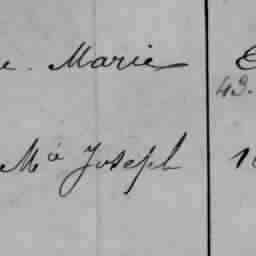 e. Marie
43.
Mª Joseph 1